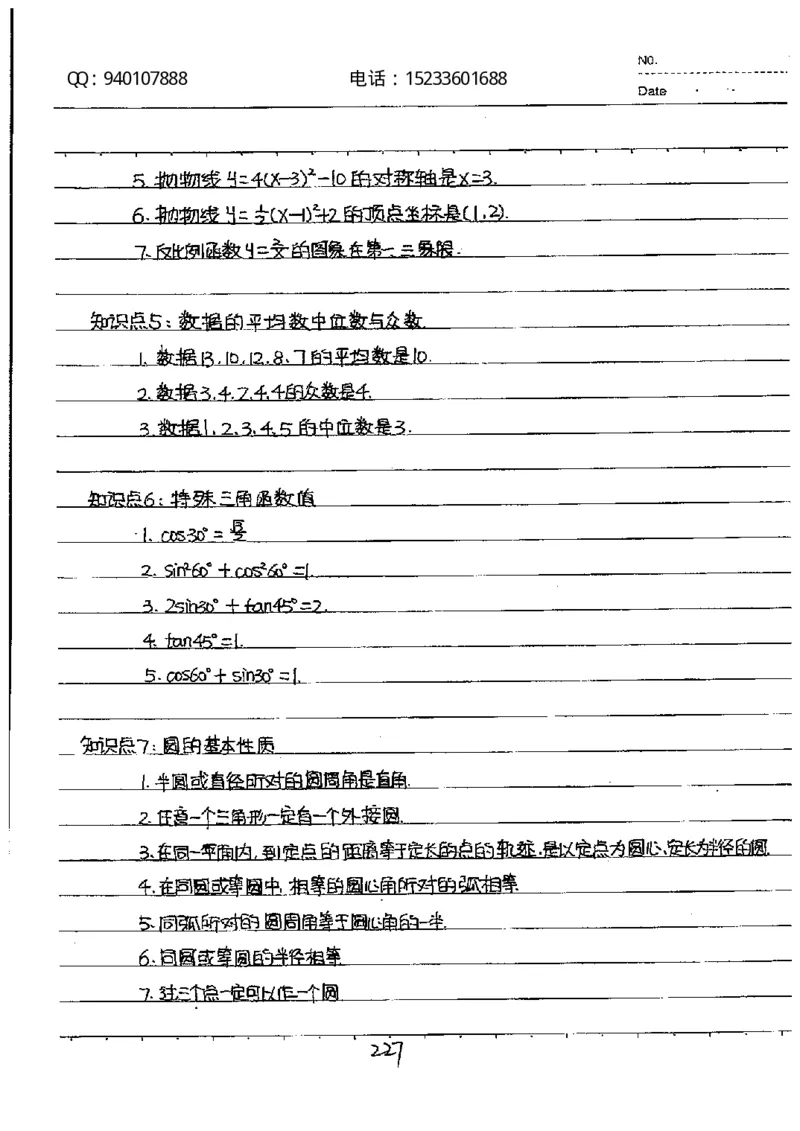 NO.
QQ：940107888 电话：15233601688
Date
5. 抛物线y=4(x-3)²-10的对称轴是x=3.
6. 抛物线y=½(x-1)²+2的顶点坐标是(1,2).
7. 反比例函数y=²⁄ₓ的图象在第一、三象限.
知识点5：数据的平均数中位数与众数.
1. 数据13,10,12,8,7的平均数是10.
2. 数据3,4,2,4,4的众数是4.
3. 数据1,2,3,4,5的中位数是3.
知识点6：特殊三角函数值
1. cos30°=√3/2
2. sin²60°+cos²60°=1.
3. 2sin30°+tan45°=2.
4. tan45°=1.
5. cos60°+sin30°=1.
知识点7：圆的基本性质
1. 半圆或直径所对的圆周角是直角.
2. 任意一个三角形一定有一个外接圆.
3. 在同一平面内,到定点的距离等于定长的点的轨迹,是以定点为圆心,定长为半径的圆.
4. 在同圆或等圆中,相等的圆心角所对的弧相等.
5. 同弧所对的圆周角等于圆心角的一半.
6. 同圆或等圆的半径相等.
7. 过三个点一定可以作一个圆.
227